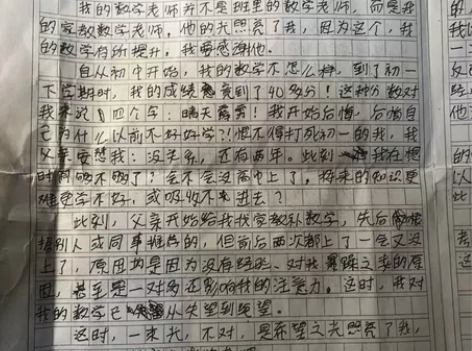 我的数学老师并不是班里的数学老师，而是我
的家教数学老师。他的光照亮了我，因为这个，我
的数学有所提升。我要感谢他。
自从初中开始，我的数学不怎么样，到了初一
下学期时，我的成绩 到了40多分！这种分数对
我来说，四个字：晴天霹雳！我开始后悔，后悔自
己为什么以前不好好学？！恨不得打死初一的我，我
父亲安慰我：没关系，还有两年。此刻 我在想
时间够不够了？会不会没高中上了，将来的知识更
难 学不好，或吸收不来进去？
此刻，父亲开始给我找家教补数学，先后
接别人或同事推荐的，但前后两次都上了一会又没
上了，原因均是因为没有经验、对我 之类的原
因，甚至是一对多还影响我的注意力。这时，我对
我的数学已 从失望到绝望。
这时，一束光，不对，是希望之光照亮了我，